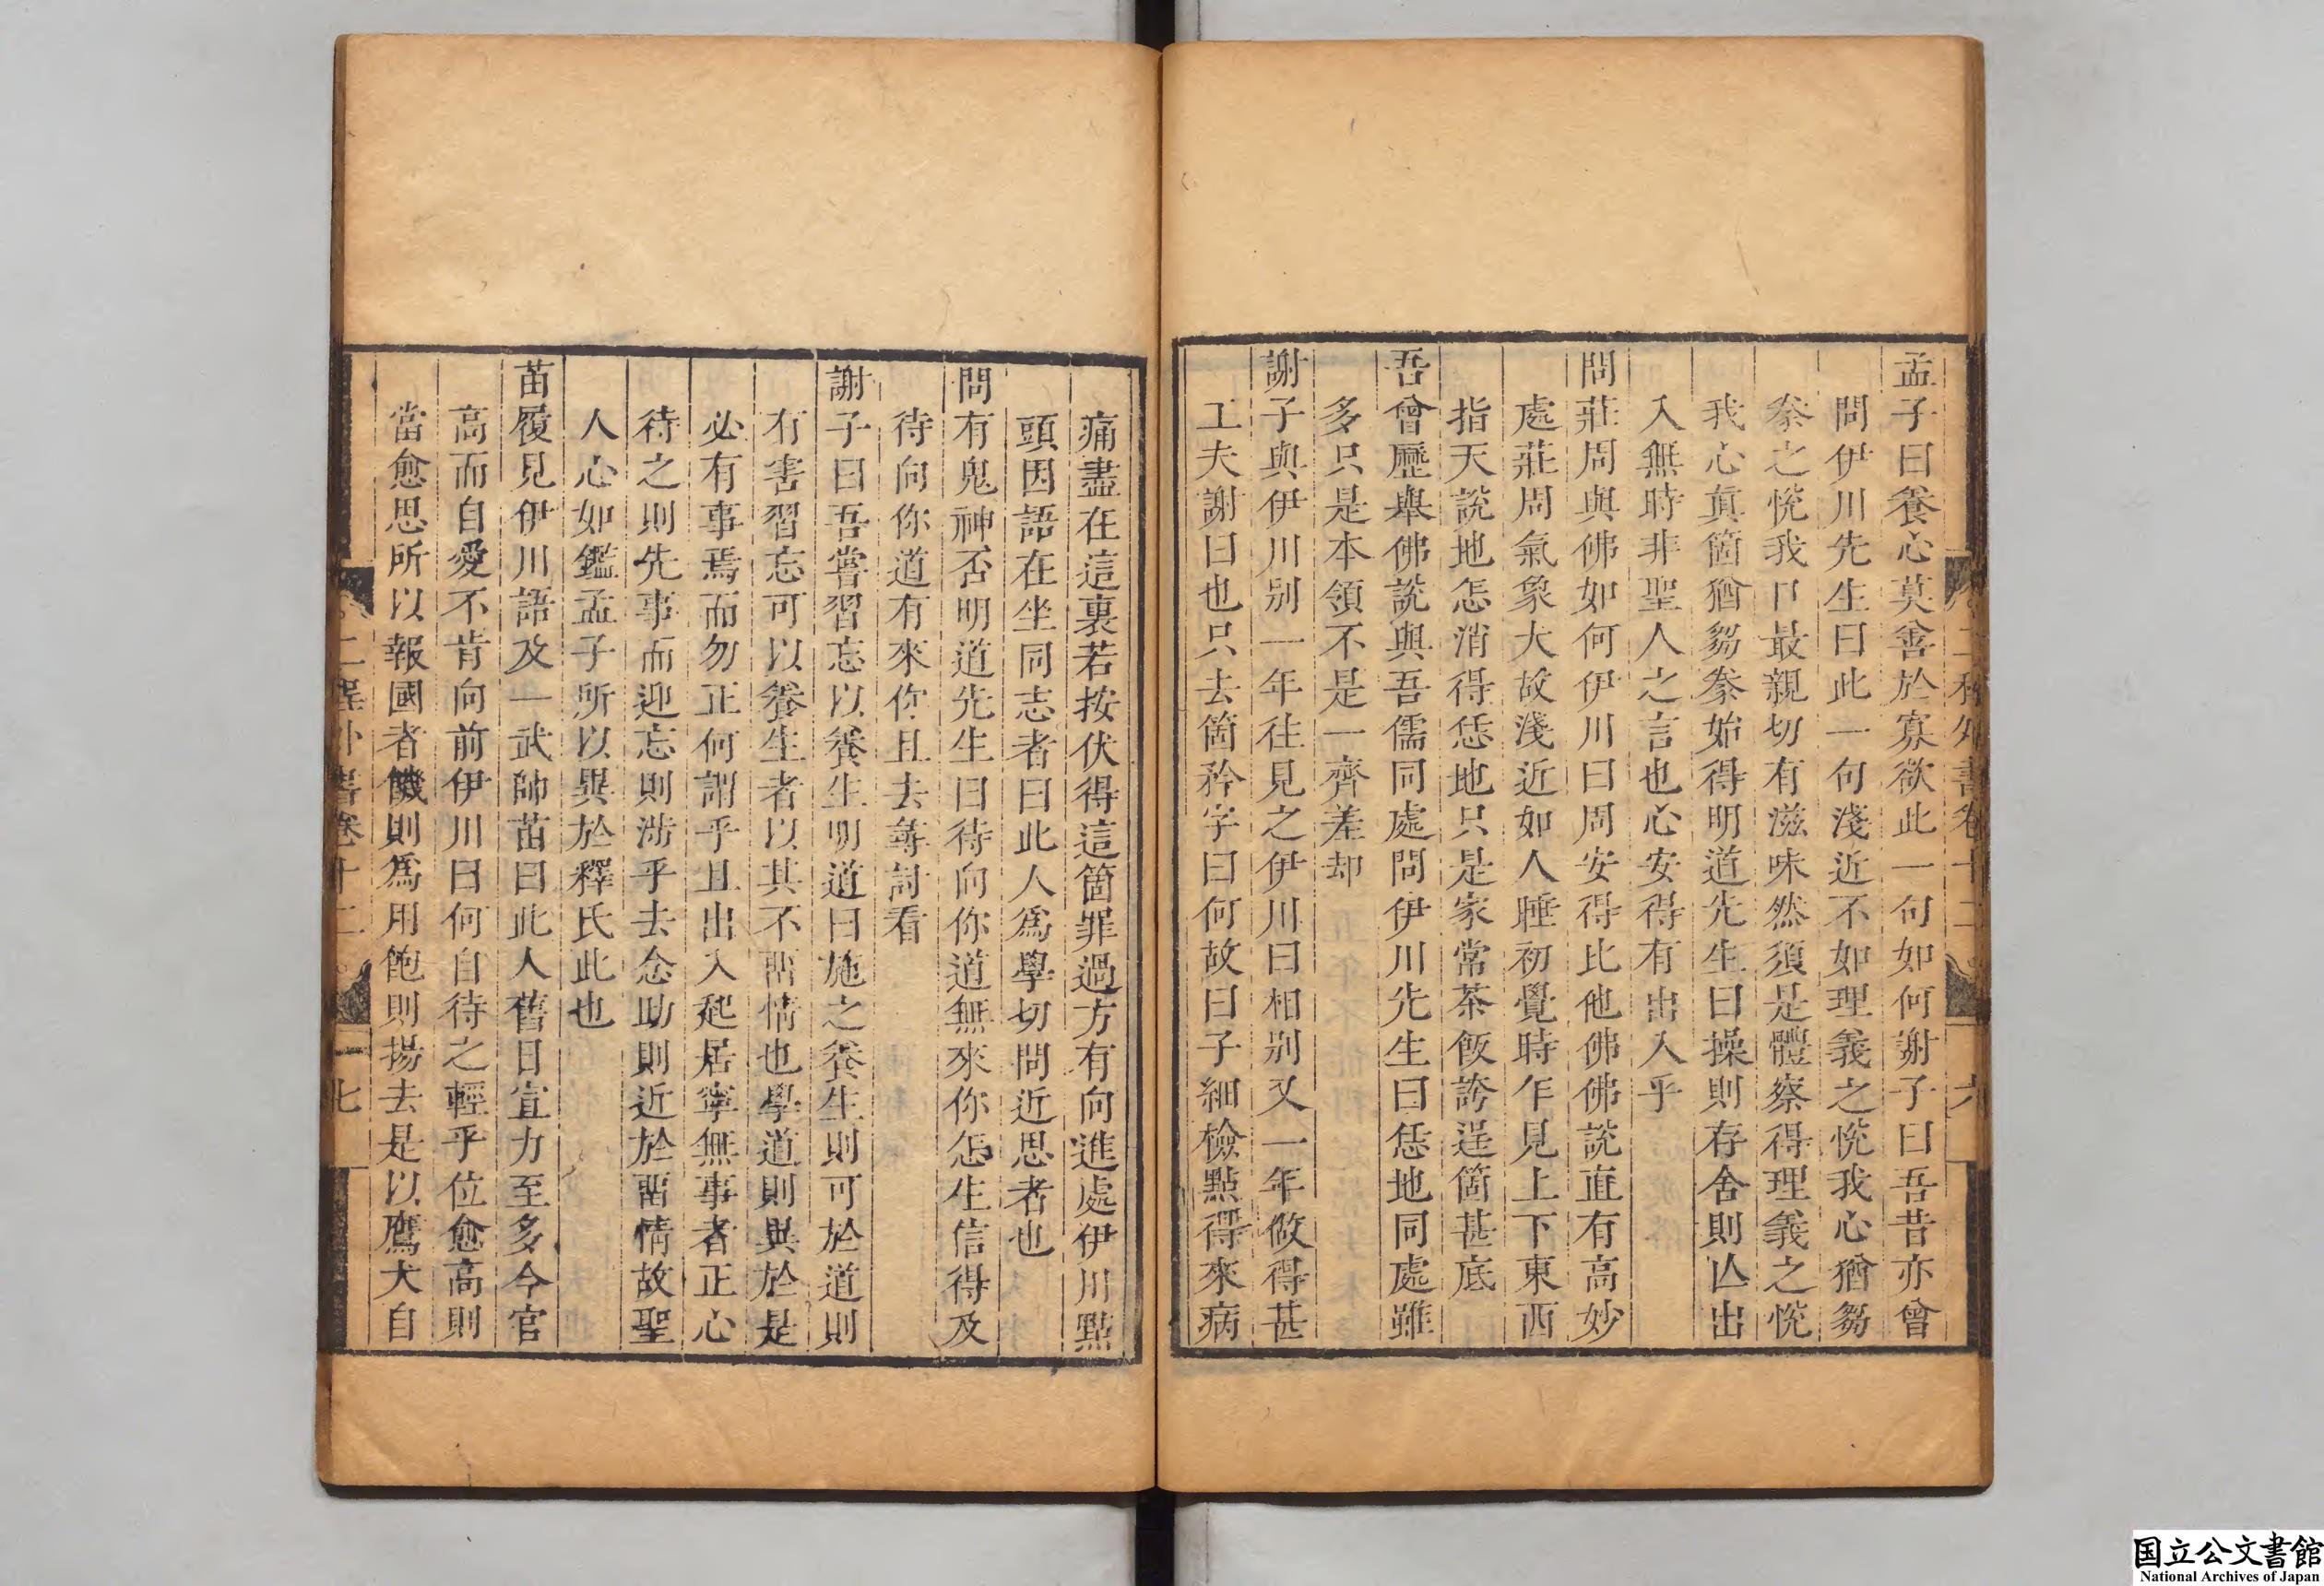 孟子曰養心莫善於寡欲此一句如何謝子曰吾昔亦曾
問伊川先生曰此一句淺近不如理義之悅我心猶芻
豢之悅我口最親切有滋味然須是體察得理義之悅
我心真箇猶芻豢始得明道先生曰操則存舍則亾出
入無時非聖人之言也心安得有出入乎
問莊周與佛如何伊川曰周安得比他佛佛說直有高妙
處莊周氣象大故淺近如人睡初覺時乍見上下東西
指天說地怎消得恁地只是家常茶飯誇逞箇甚底
吾曾歷舉佛說與吾儒同處問伊川先生曰恁地同處雖
多只是本領不是一齊差却
謝子與伊川别一年往見之伊川曰相别又一年做得甚
工夫謝曰也只去箇矜字曰何故曰子細檢點得來病
二程外書卷十二
六
痛盡在這裏若按伏得這箇罪過方有向進處伊川點
頭因語在坐同志者曰此人爲學切問近思者也
問有鬼神否明道先生曰待向你道無來你怎生信得及
待向你道有來你且去尋討看
謝子曰吾嘗習忘以養生明道曰施之養生則可於道則
有害習忘可以養生者以其不留情也學道則異於是
必有事焉而勿正何謂乎且出入起居寧無事者正心
待之則先事而迎忘則涉乎去念助則近於留情故聖
人心如鑑孟子所以異於釋氏此也
苗履見伊川語及一武帥苗曰此人舊日宣力至多今官
高而自愛不肯向前伊川曰何自待之輕乎位愈高則
當愈思所以報國者饑則爲用飽則揚去是以鷹犬自
二程外書卷十二
七
国立公文書館
National Archives of Japan